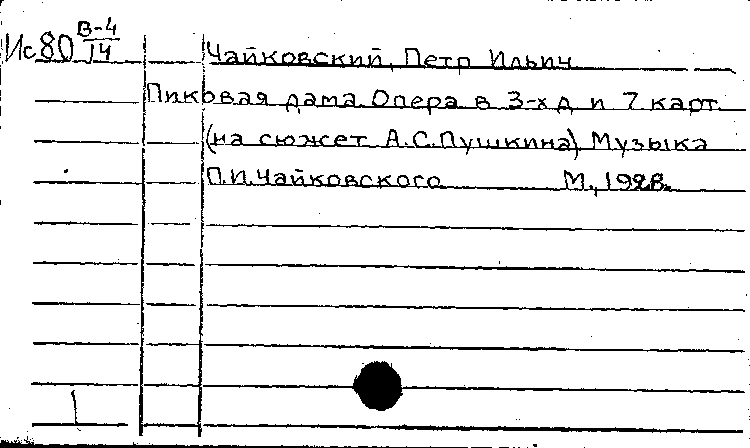 Ис80 В-4/14
Чайковский, Петр Ильич
Пиковая дама. Опера в 3-х д и 7 карт.
(на сюжет А.С.Пушкина) Музыка
П.И.Чайковского М., 1928.